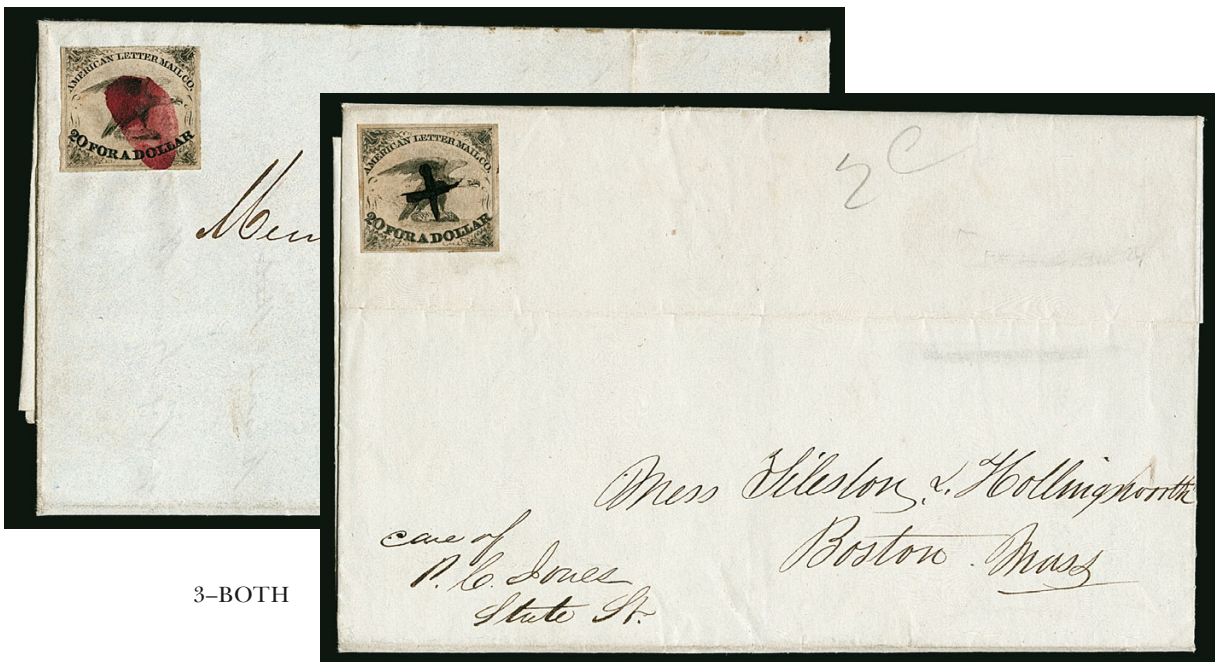 AMERICAN LETTER MAIL CO.
20 FOR A DOLLAR
AMERICAN LETTER MAIL CO.
20 FOR A DOLLAR
2 C
Mess Tileston & Hollingsworth
Boston. Mass
care of
P. C. Jones
State St.
3–BOTH